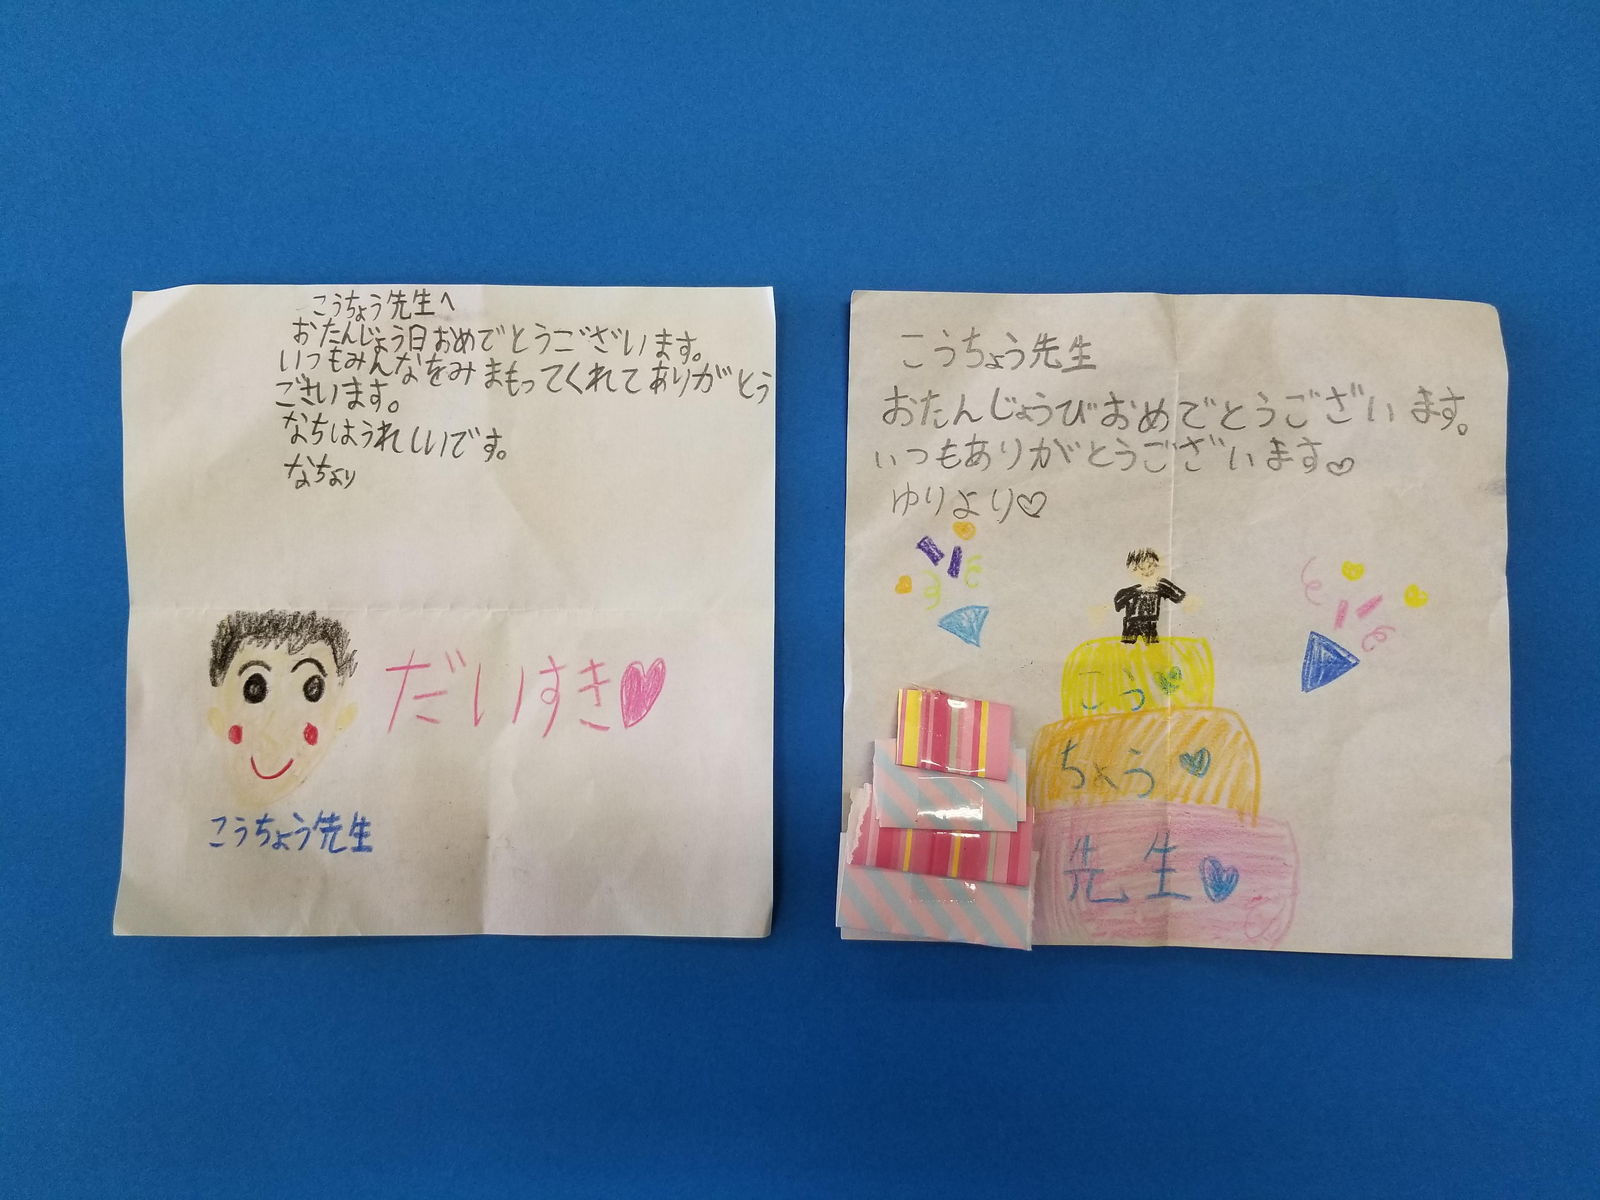 こうちょう先生へ
おたんじょう日おめでとうございます。
いつもみんなをみまもってくれてありがとう
ございます。
なちはうれしいです。
なちより
だいすき♥
こうちょう先生
こうちょう先生
おたんじょうびおめでとうございます。
いつもありがとうございます♡
ゆりより♡
こう♥
ちょう♥
先生♥